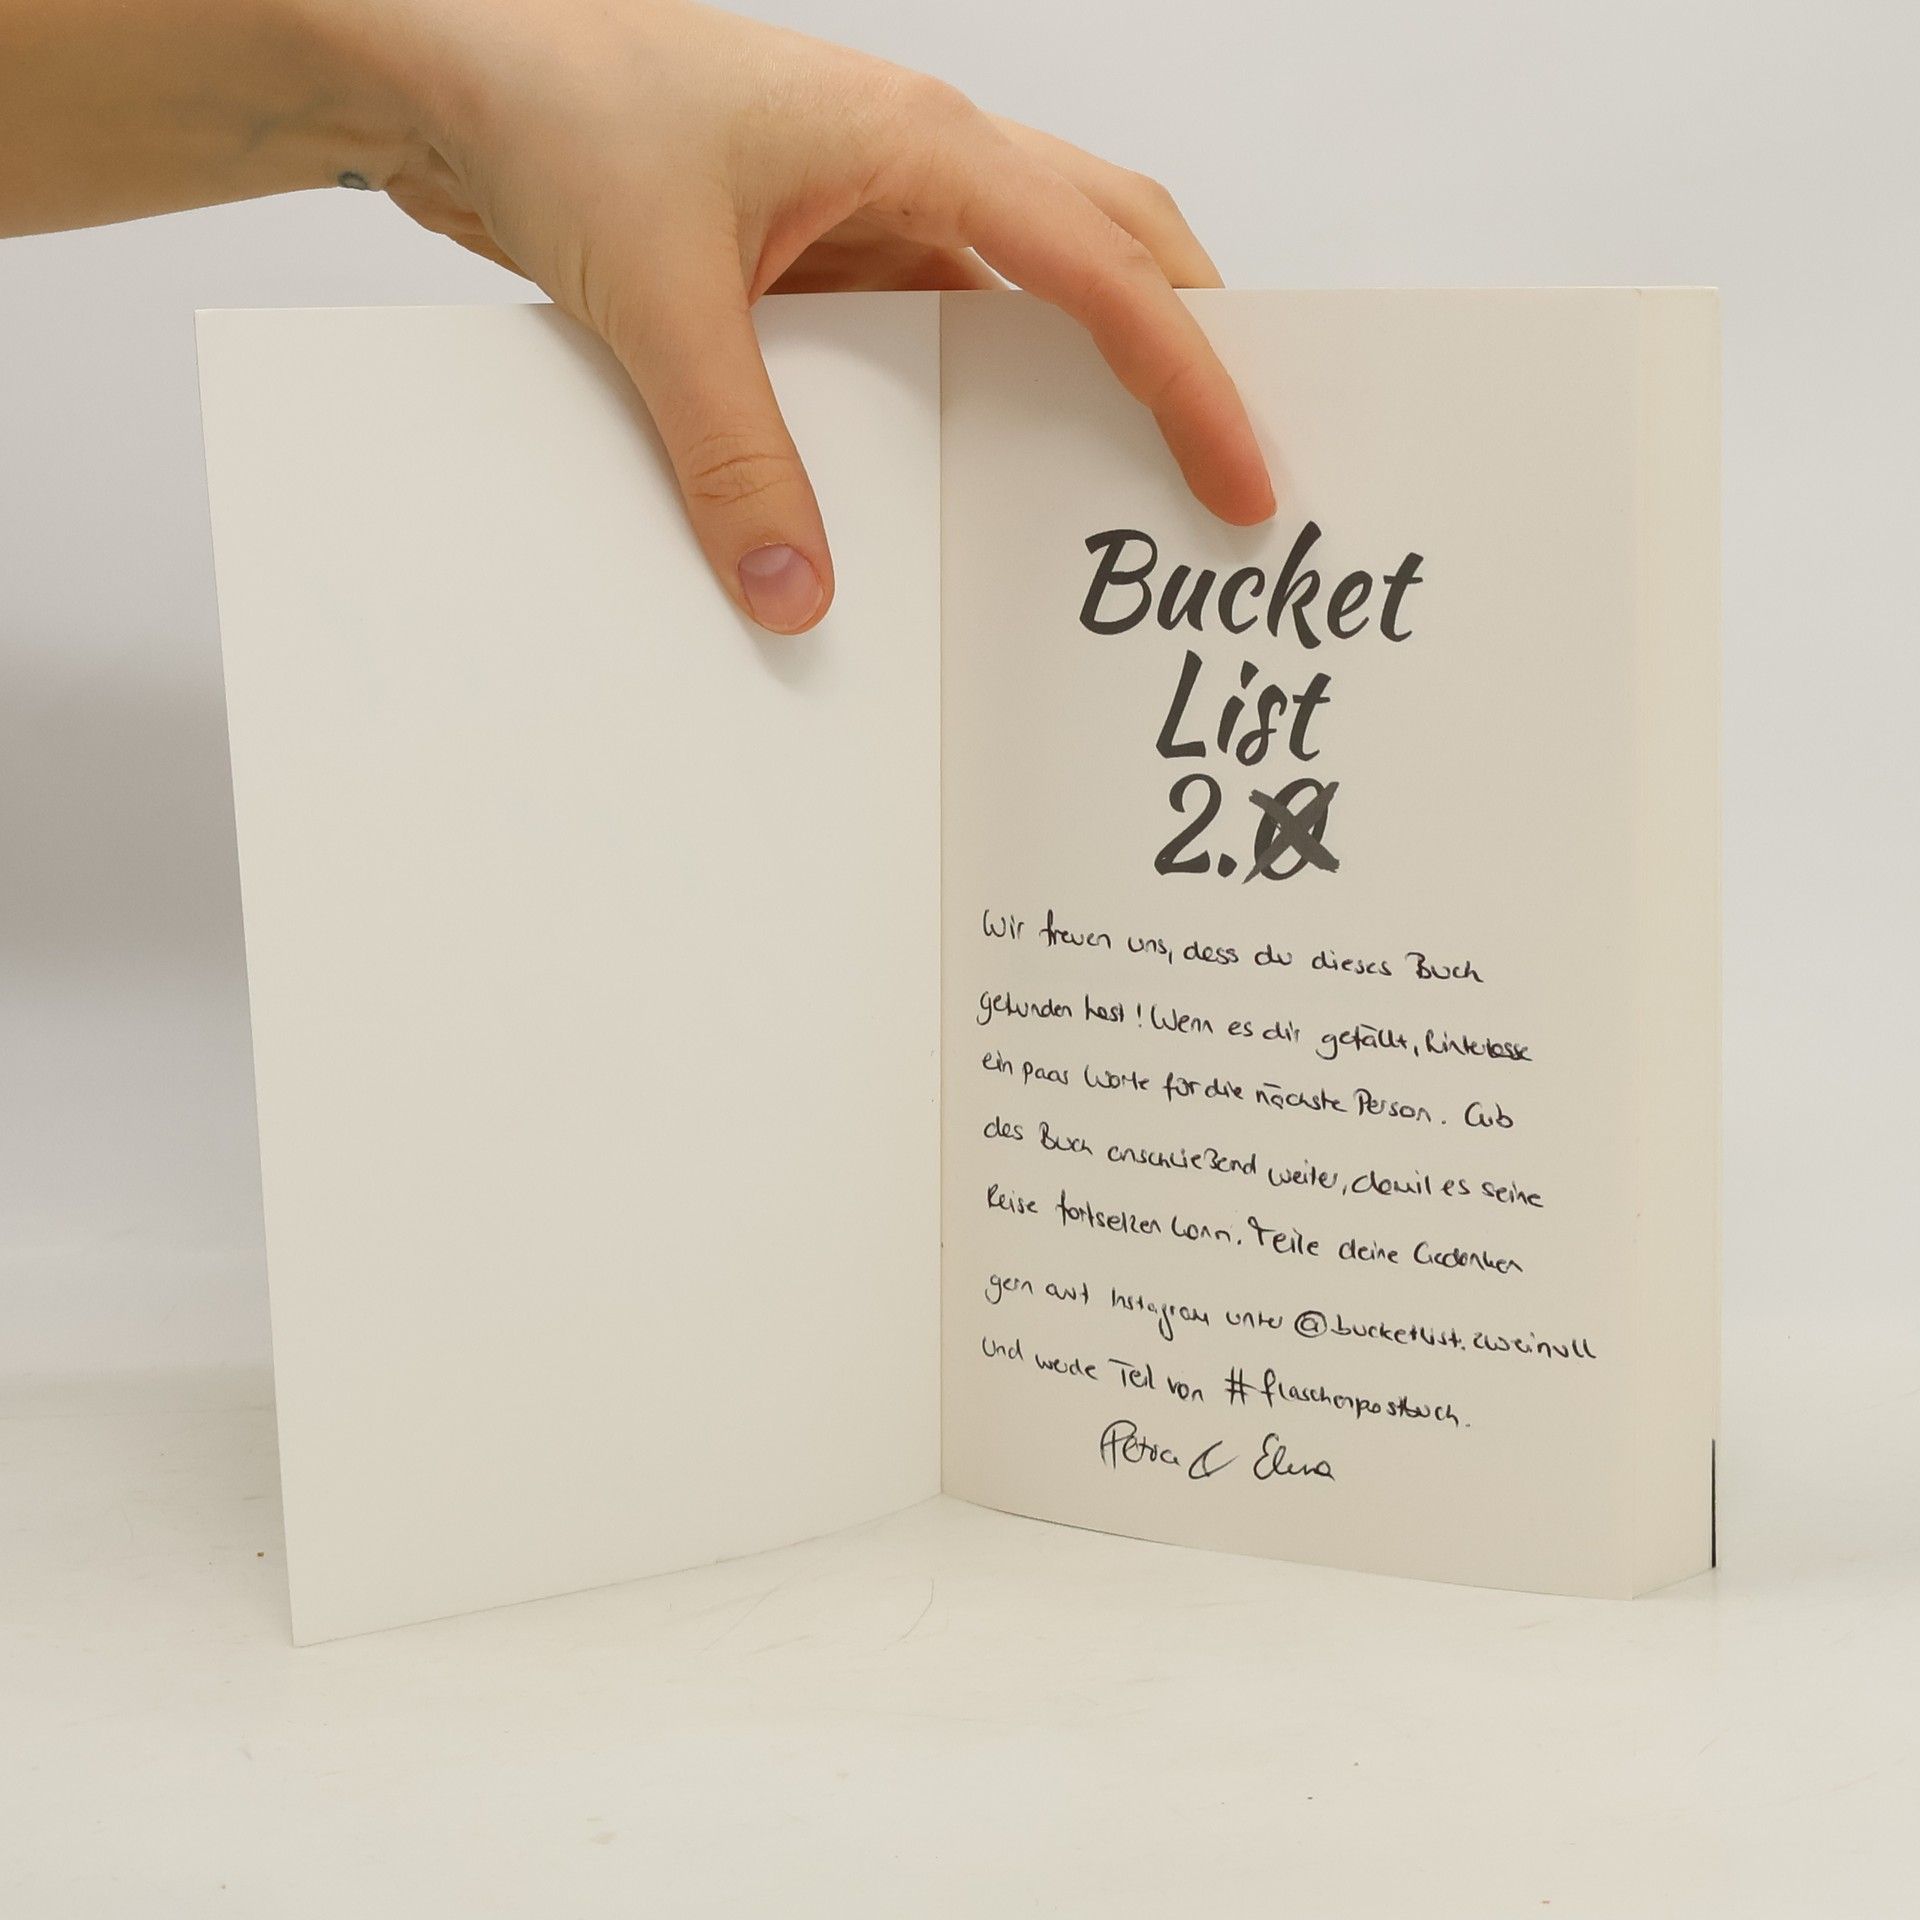 Bucket
List
2.0
Wir freuen uns, dass du dieses Buch
gefunden hast! Wenn es dir gefällt, hinterlasse
ein paar Worte für die nächste Person. Gib
das Buch anschließend weiter, damit es seine
Reise fortsetzen kann. Teile deine Gedanken
gern auf Instagram unter @bucketlist.zweinull
und werde Teil von #flaschenpostbuch.
Petra & Elena